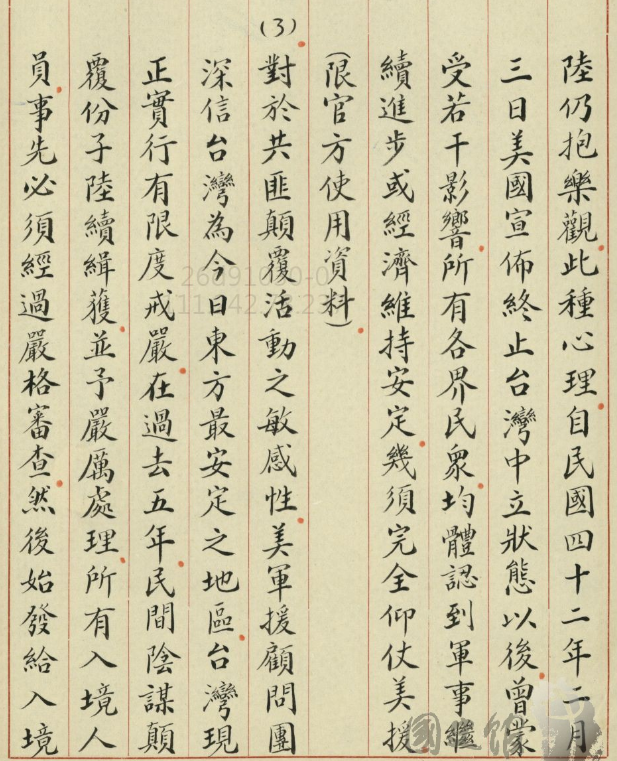 陸仍抱樂觀此種心理自民國四十二年二月
三日美國宣佈終止台灣中立狀態以後曾蒙
受若干影響所有各界民衆均體認到軍事繼
續進步或經濟維持安定幾須完全仰仗美援
(限官方使用資料)
(3)
對於共匪顛覆活動之敏感性美軍援顧問團
深信台灣為今日東方最安定之地區台灣現
正實行有限度戒嚴在過去五年民間陰謀顛
覆份子陸續緝獲並予嚴厲處理所有入境人
員事先必須經過嚴格審查然後始發給入境
國史館